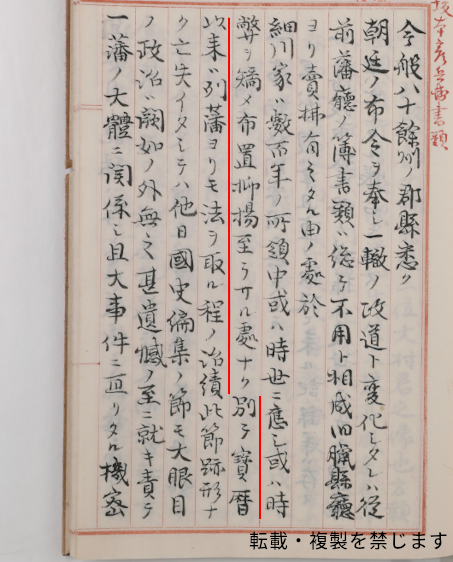 坂本彦兵衛書類
今般八十餘州ノ郡縣悉ク
朝廷ノ布令ヲ奉シ一轍ノ政道ト變化シタレハ従
前藩廳ノ簿書類ハ総テ不用ト相成旧臓縣廳
ヨリ賣拂有シタル由ノ處於
細川家ハ數百年ノ所領中或ハ時世ニ應シ或ハ時
弊ヲ矯メ布置抑揚至ラサル處ナク別テ寳暦
以来ハ別藩ヨリモ法ヲ取ル程ノ治績此節跡形ナ
ク亡失イタシテハ他日國史編集ノ節モ大眼目
ノ政治ハ闕如ノ外無之甚遺憾ノ至ニ就キ責テ
一藩ノ大體ニ関係シ且大事件ニ亘リタル機密
転載・複製を禁じます